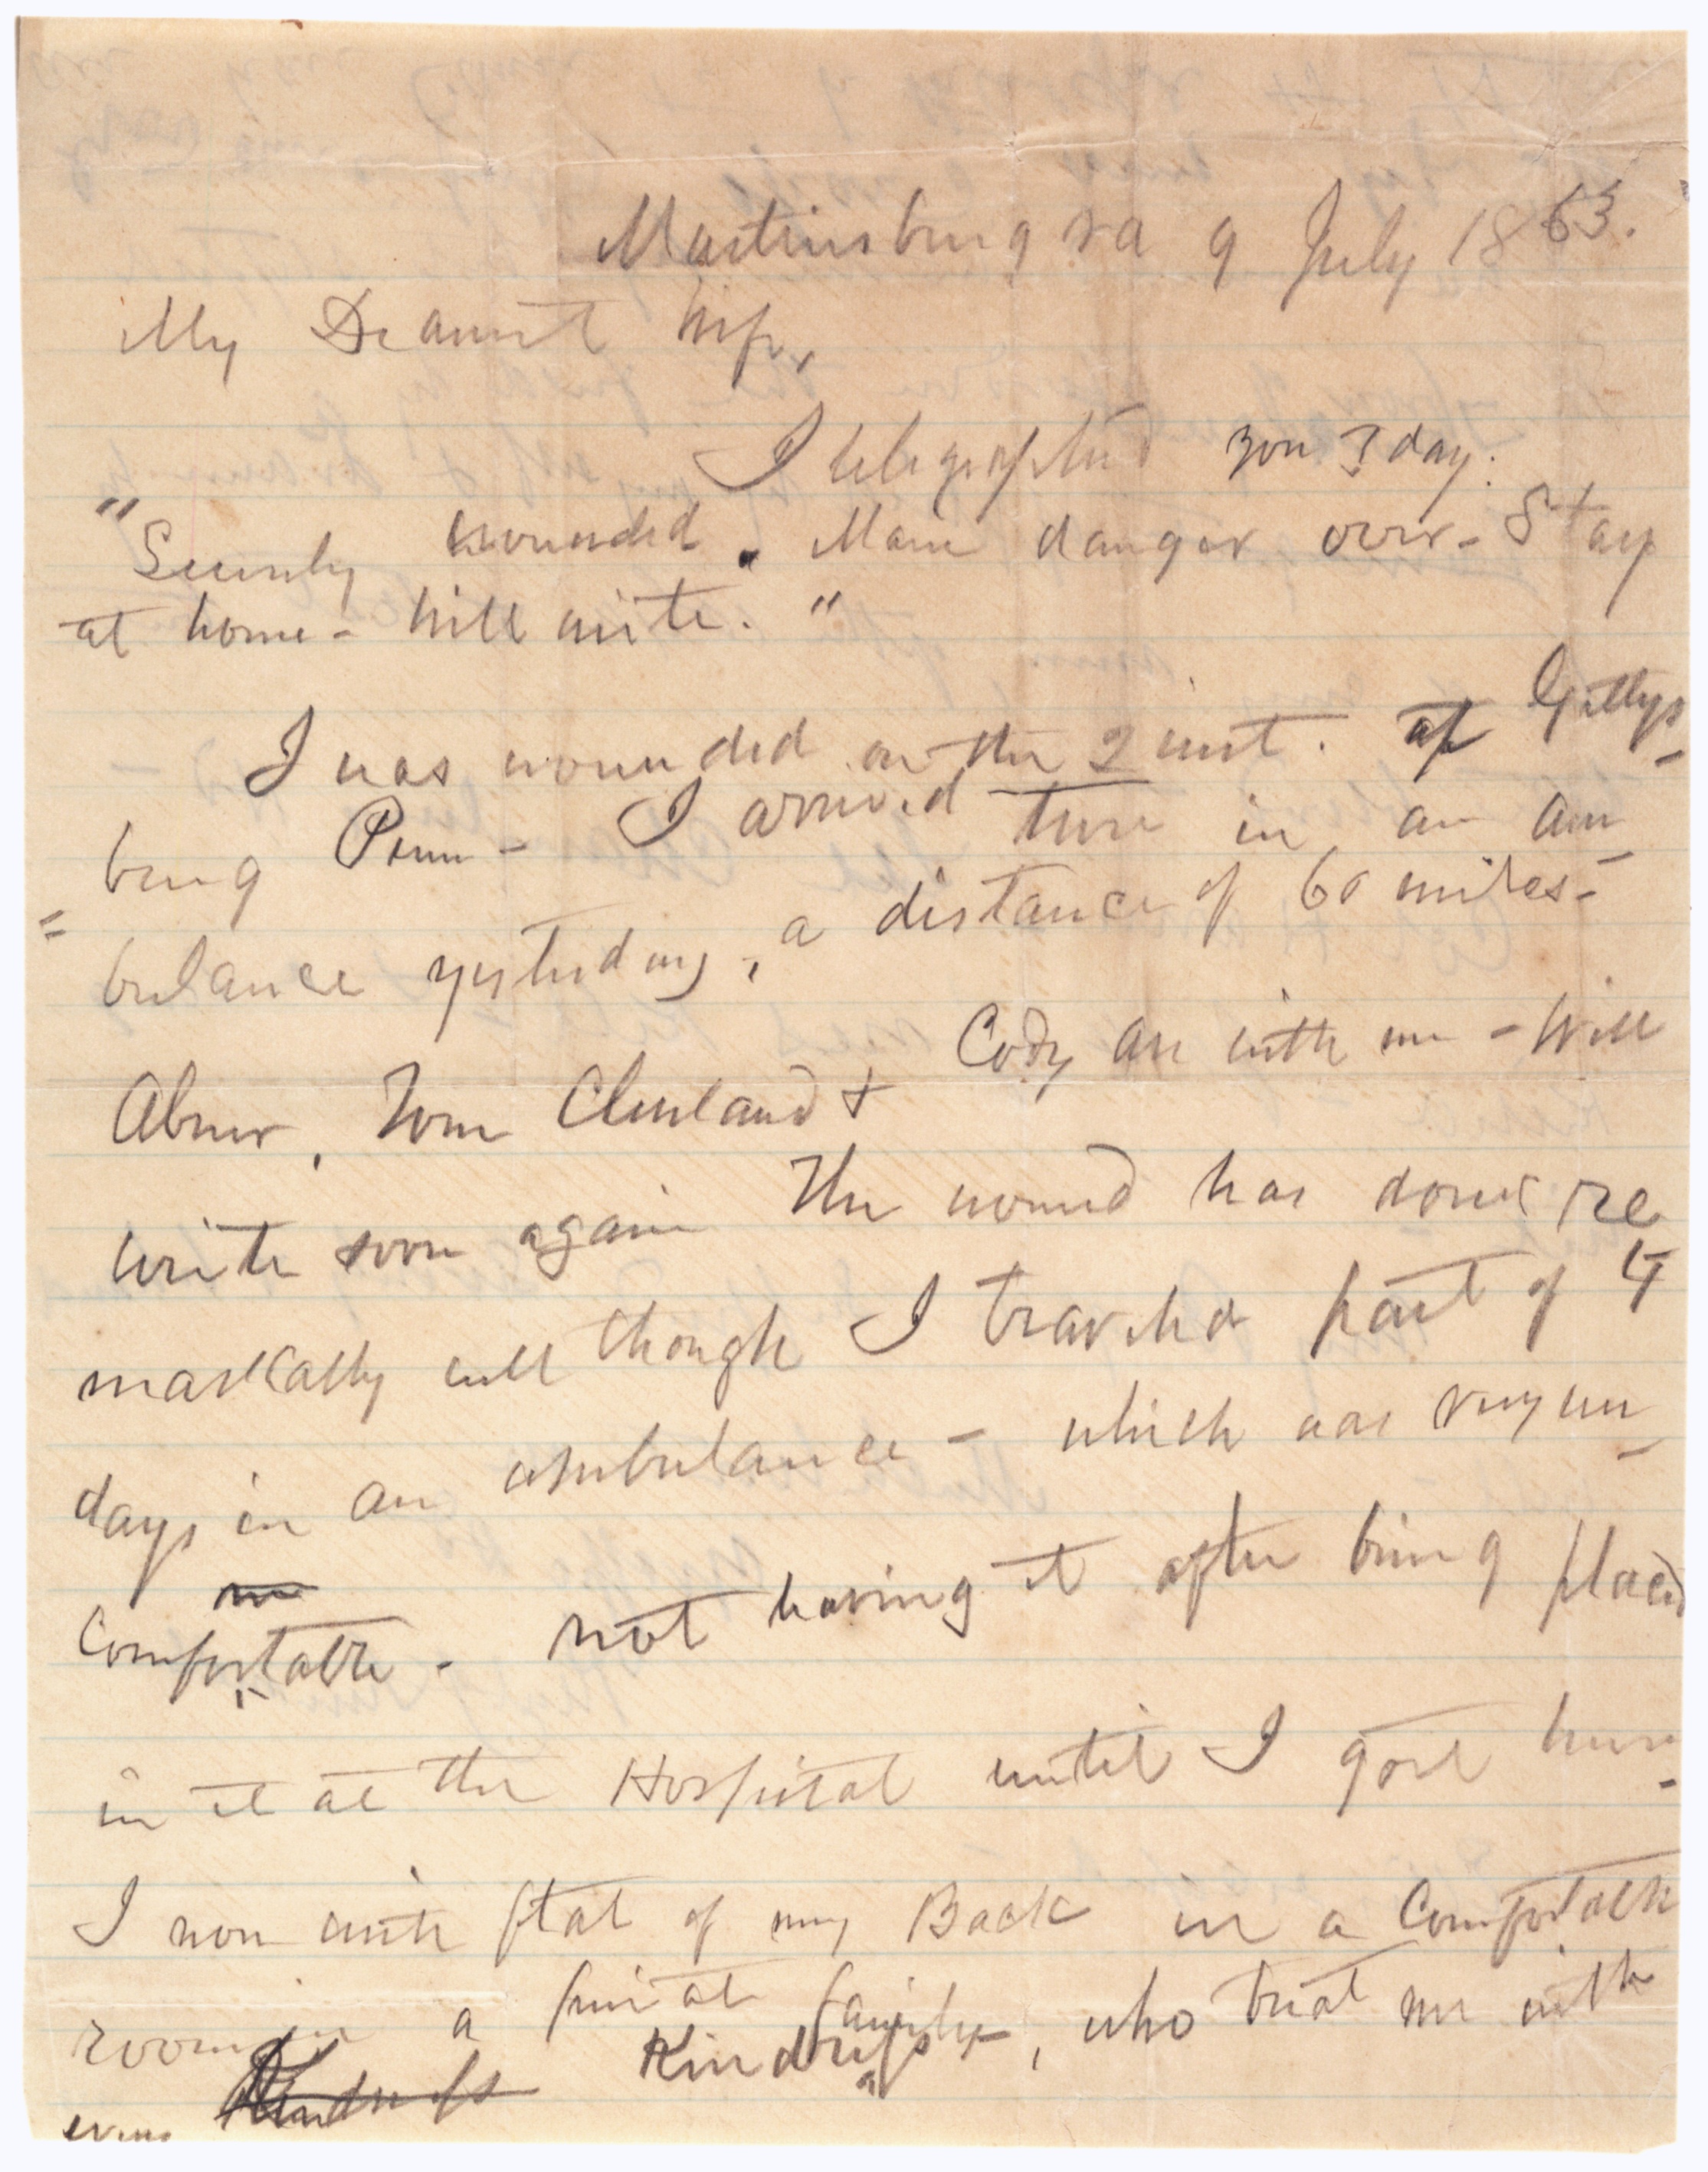 Martinsburg Va 9 July 1863.
My Dearest Wife,
I telegraphed you to day.
"Severely wounded. Main danger over - Stay
at home - Will write."
I was wounded on the 2 inst. at Gettys-
burg Penn - I arrived here in an am-
=bulance yesterday, a distance of 60 miles -
Abner, Tom Cleveland & Cody are with me - Will
write soon again The wound has done re
markably well though I traveled part of 4
days in an ambulance - which was very un-
comfortable - not having it after being placed
in it at the Hospital until I got here -
I now write flat of my Back in a Comfortable
room in a private family, who treat me with
every Kindness Kindness